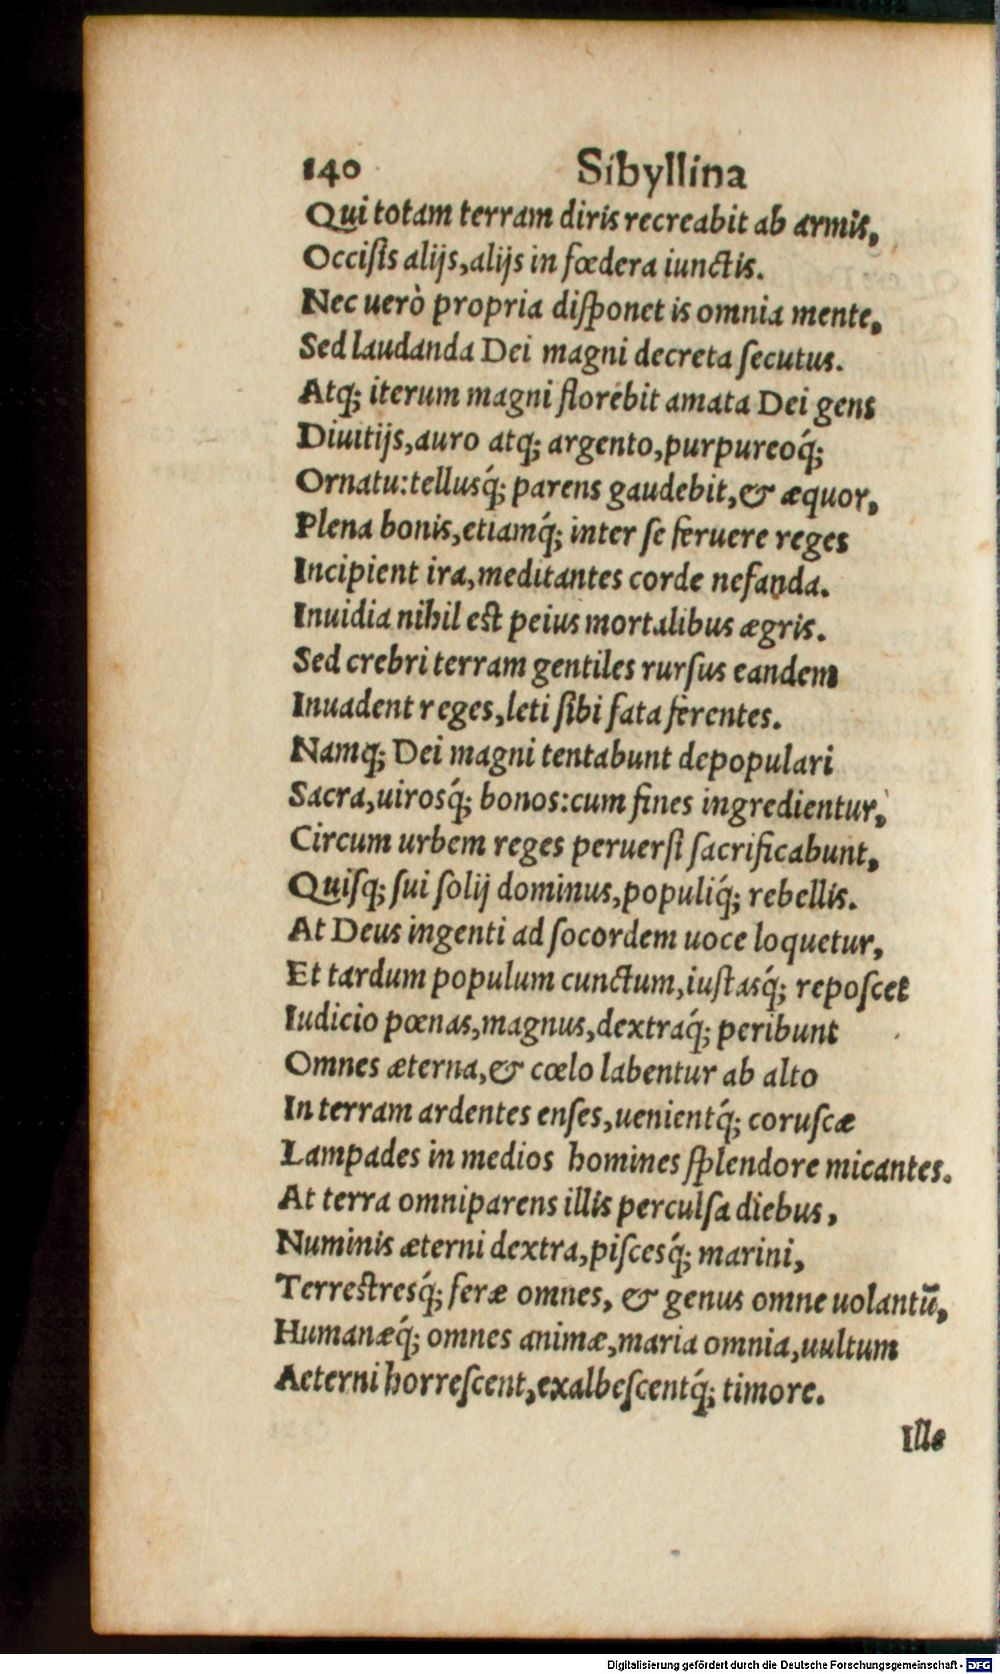 140 Sibyllina
Qui totam terram diris recreabit ab armis,
Occiſis alijs, alijs in fœdera iunctis.
Nec uerò propria diſponet is omnia mente,
Sed laudanda Dei magni decreta ſecutus.
Atq; iterum magni florebit amata Dei gens
Diuitijs, auro atq; argento, purpureoq́;
Ornatu: tellusq́; parens gaudebit, & æquor,
Plena bonis, etiamq́; inter ſe feruere reges
Incipient ira, meditantes corde nefanda.
Inuidia nihil eſt peius mortalibus ægris.
Sed crebri terram gentiles rurſus eandem
Inuadent reges, leti ſibi fata ferentes.
Namq; Dei magni tentabunt depopulari
Sacra, uirosq́; bonos: cum fines ingredientur,
Circum urbem reges peruerſi ſacrificabunt,
Quiſq; ſui ſolij dominus, populiq́; rebellis.
At Deus ingenti ad ſocordem uoce loquetur,
Et tardum populum cunctum, iuſtasq́; repoſcet
Iudicio pœnas, magnus, dextraq́; peribunt
Omnes æterna, & cœlo labentur ab alto
In terram ardentes enſes, uenientq́; coruſcæ
Lampades in medios homines ſplendore micantes.
At terra omniparens illis perculſa diebus,
Numinis æterni dextra, piſcesq́; marini,
Terreſtresq́; feræ omnes, & genus omne uolantū,
Humanæq́; omnes animæ, maria omnia, uultum
Aeterni horreſcent, exalbeſcentq́; timore.
Ille
Digitalisierung gefördert durch die Deutsche Forschungsgemeinschaft - DFG